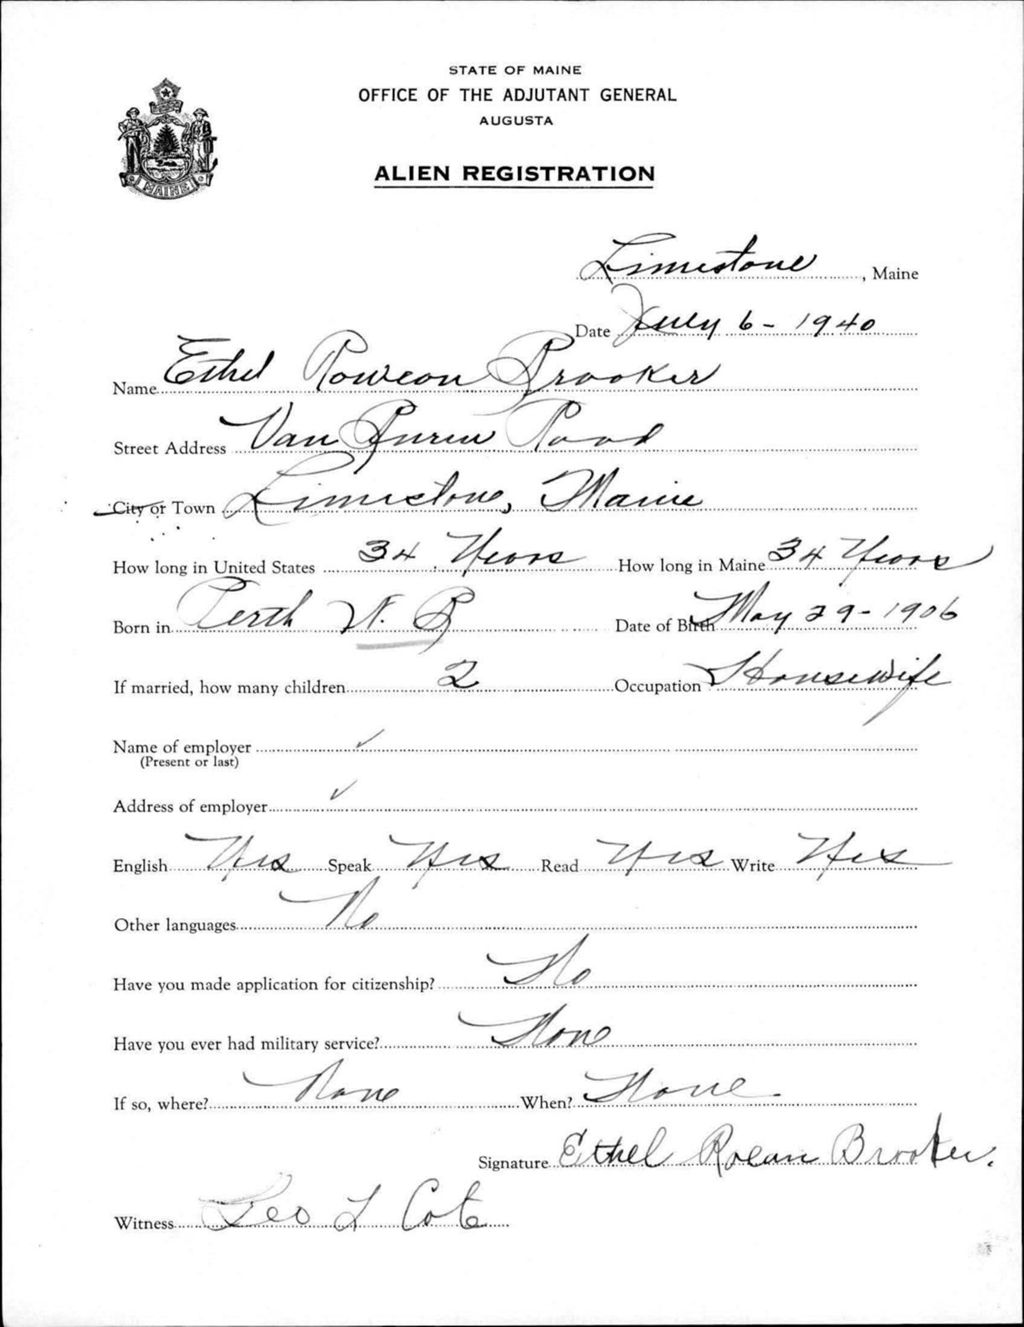 STATE OF MAINE
OFFICE OF THE ADJUTANT GENERAL
AUGUSTA
ALIEN REGISTRATION
MAINE
Limestone, Maine
Date July 6 - 1940
Name Ethel Brooker
Street Address Van Buren Road
City or Town Limestone, Maine
How long in United States 34 Years How long in Maine 34 Years
Born in Perth N. B Date of Birth May 29 - 1906
If married, how many children 2 Occupation Housewife
Name of employer ✓
(Present or last)
Address of employer ✓
English Yes Speak Yes Read Yes Write Yes
Other languages No
Have you made application for citizenship? No
Have you ever had military service? None
If so, where? None When? None
Signature Ethel Roean Brooker.
Witness Geo L Cote